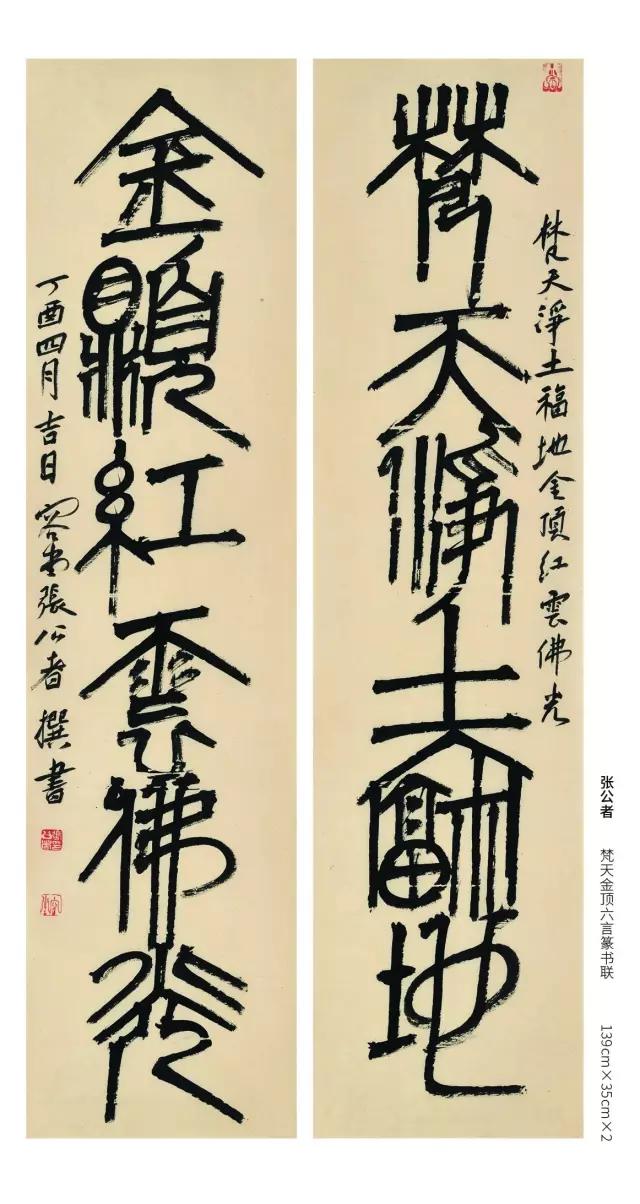 梵天淨土福地
梵天淨土福地金頂紅雲佛光
金頂紅雲佛光
丁酉四月吉日容堂張公者撰書
张公者 梵天金顶六言篆书联 139cm×35cm×2